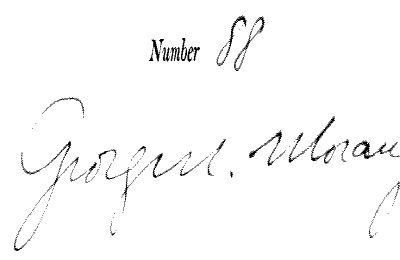 Number 88
George N. Morang